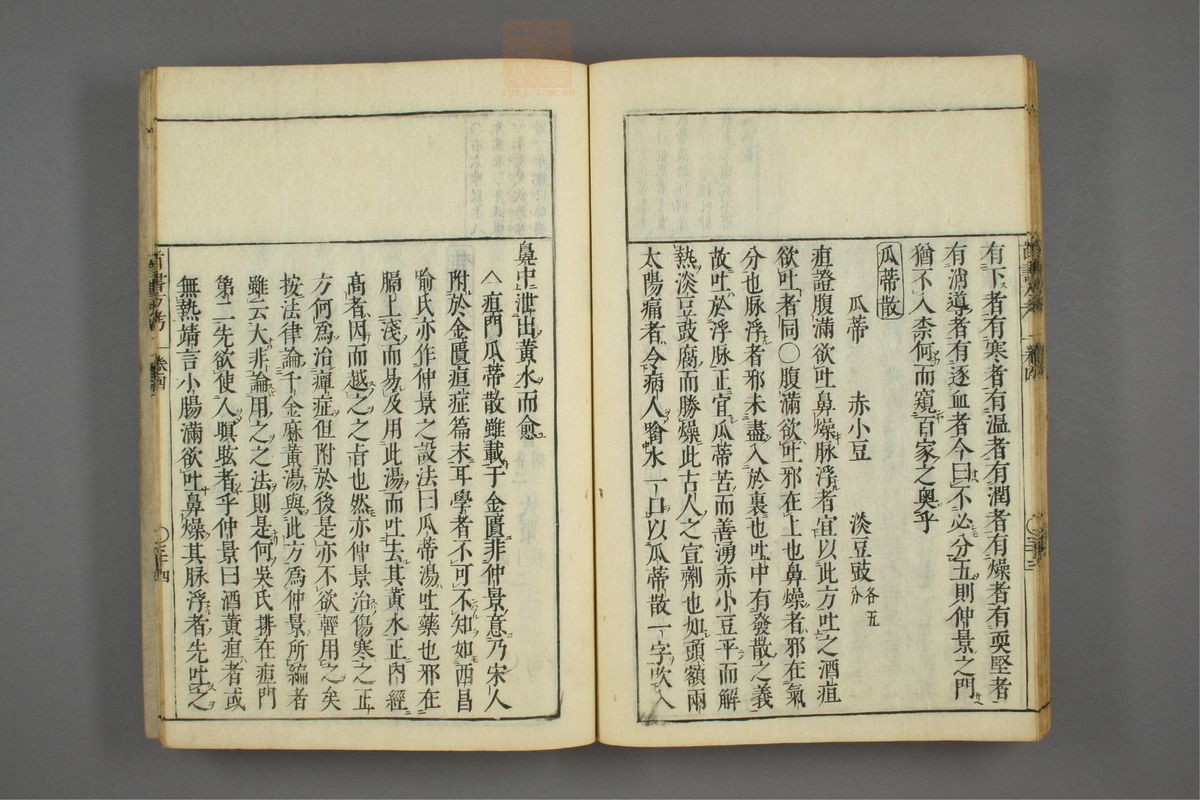 有下者有寒者有温者有潤者有燥者有耎堅者
有消導者有逐血者今曰不必分五則仲景之門
猶不入柰何而窺百家之奧乎
瓜蒂散
瓜蒂 赤小豆 淡豆豉各五分
疸證腹滿欲吐鼻燥脉浮者宜以此方吐之酒疸
欲吐者同○腹滿欲吐邪在上也鼻燥者邪在氣
分也脉浮者邪未盡入於裏也吐中有發散之義
故吐於浮脉正宜瓜蒂苦而善湧赤小豆平而解
熱淡豆豉腐而勝燥此古人之宣劑也如頭額兩
太陽痛者令病人噙水一口以瓜蒂散一字吹入
鼻中泄出黃水而愈
疸門瓜蒂散雖載于金匱非仲景意乃宋人
附於金匱疸症篇末耳學者不可不知如西昌
喻氏亦作仲景之設法曰瓜蒂湯吐藥也邪在
膈上淺而易及用此湯而吐去其黃水正內經
髙者因而越之之旨也然亦仲景治傷寒之正
方何爲治癉症但附於後是亦不欲輕用之矣
按法律論千金麻黃湯與此方爲仲景所編者
雖云大非論用之之法則是何吳氏排在疸門
第二先欲使人瞑眩者乎仲景曰酒黃疸者或
無熱靖言小腸滿欲吐鼻燥其脉浮者先吐之
卷四
三十四